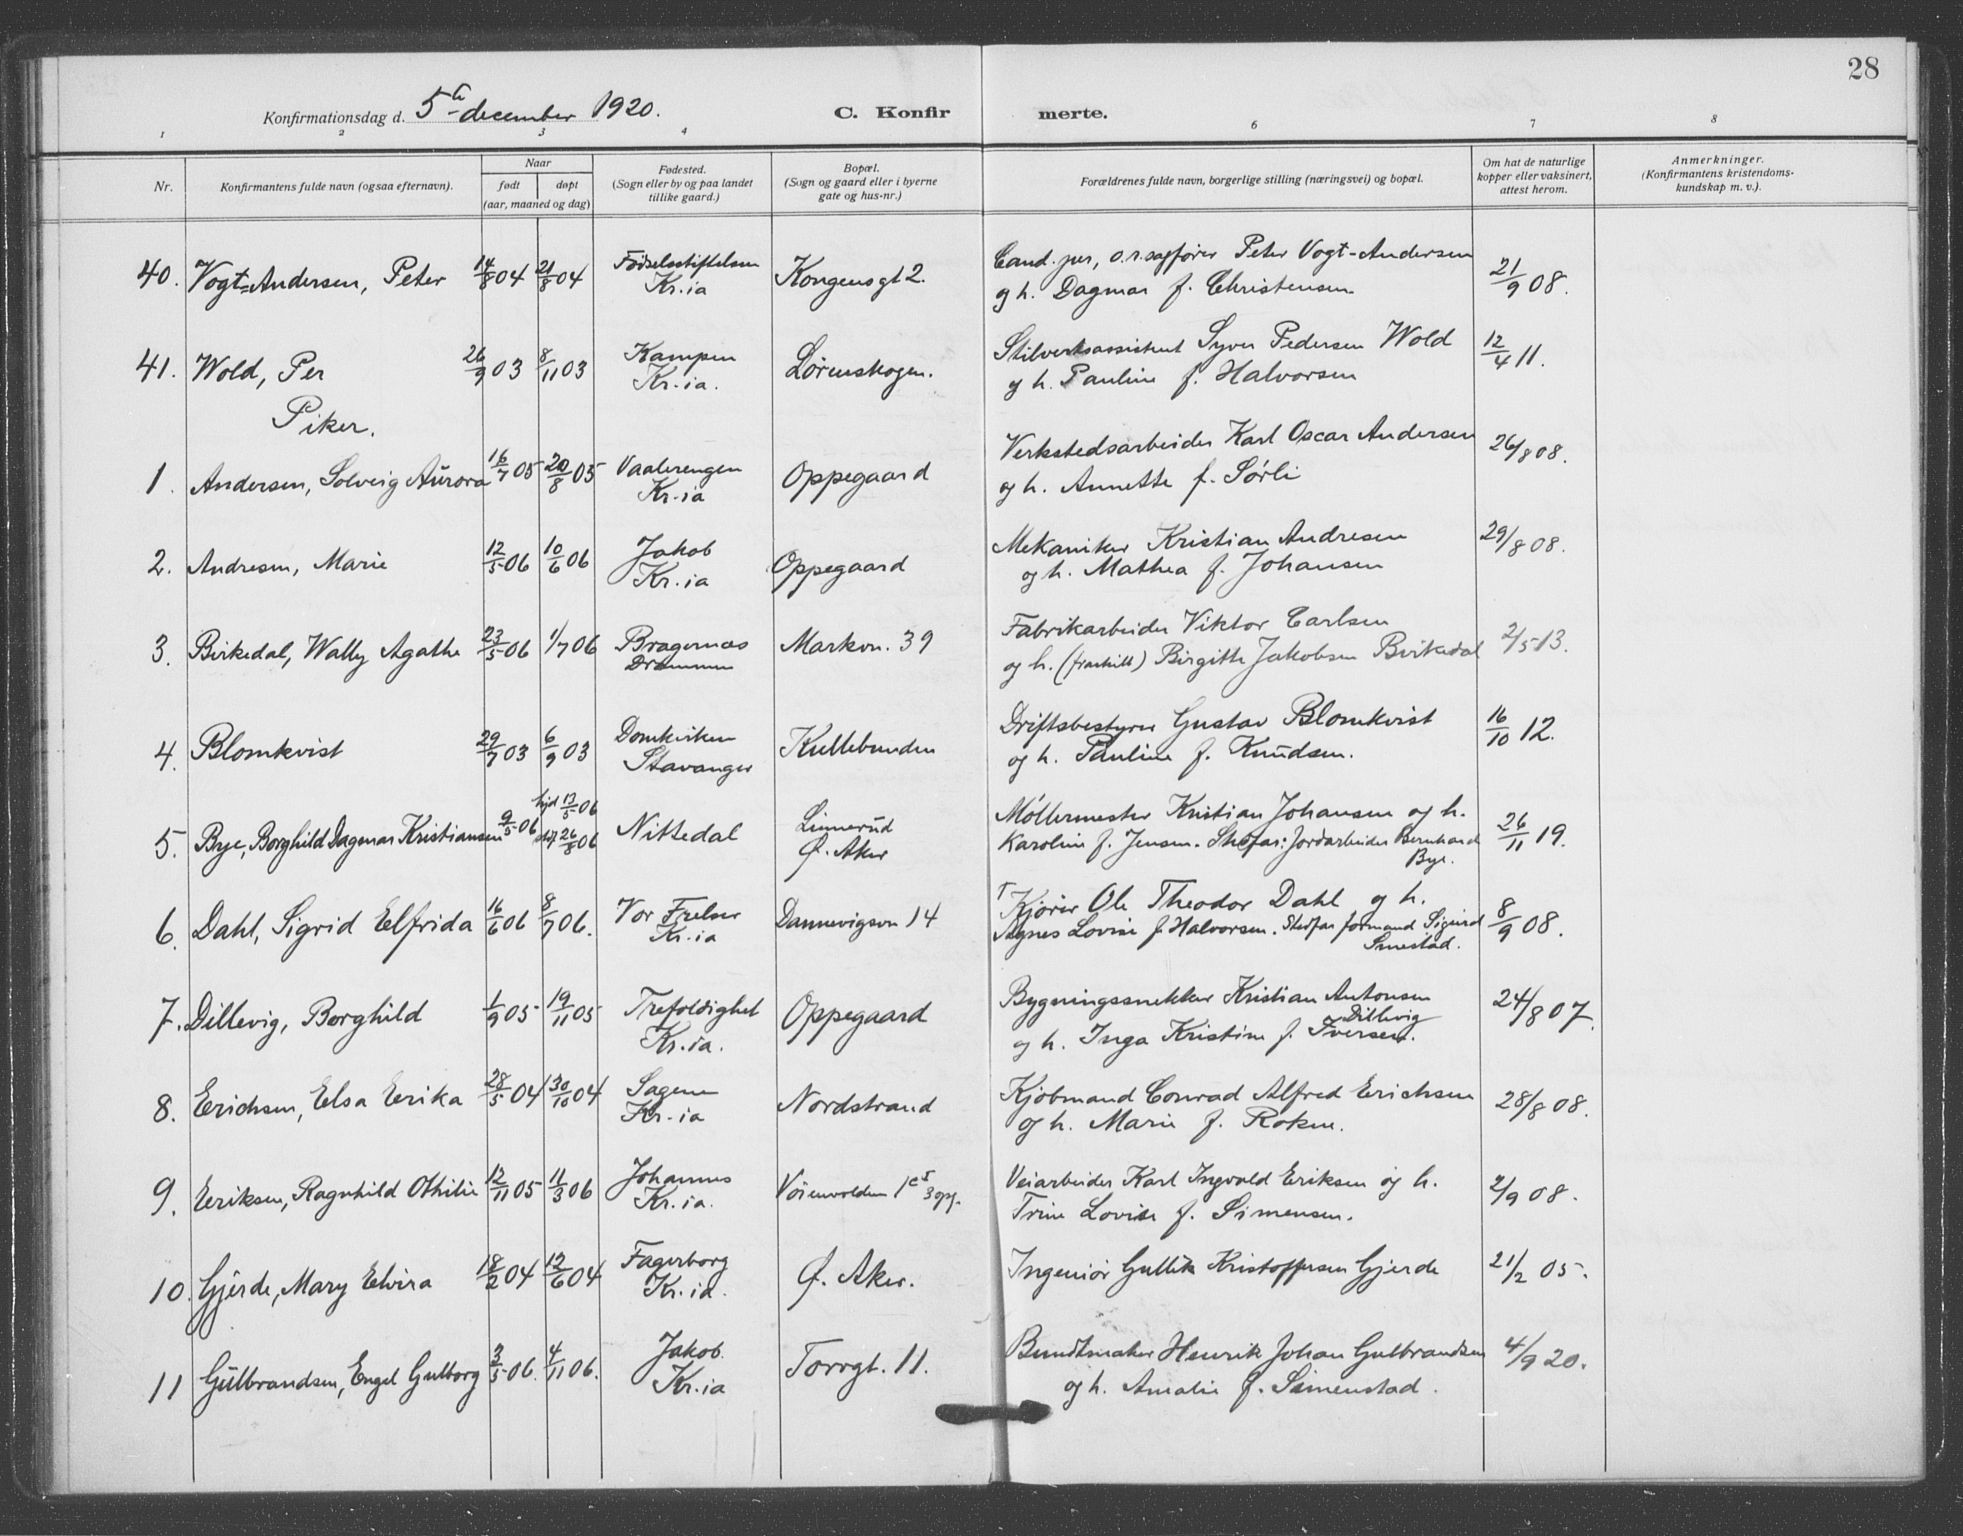 28
Konfirmationsdag d. 5te december 1920. C. Konfir merte.
1 2 3 4 6 7 8
Nr. Konfirmantens fulde navn (ogsaa efternavn). Naar født døpt (aar, maaned og dag) Fødested. (Sogn eller by og paa landet tillike gaard.) Bopæl. (Sogn og gaard eller i byerne gate og hus-nr.) Forældrenes fulde navn, borgerlige stilling (næringsvei) og bopæl. Om hat de naturlige kopper eller vaksinert, attest herom. Anmerkninger. (Konfirmantens kristendoms-kundskap m. v.).
40. Vogt-Andersen, Peter 14/8 04 21/8 04 Fødselsstiftelsen Kr.ia Kongensgt 2. Cand. jur, o.r.sagfører Peter Vogt-Andersen 21/9 08.
og h. Dagmar f. Christensen
41. Wold, Per 26/9 03 8/11 03 Kampen Kr.ia. Lørenskogen. Stilverksassistent Syver Pedersen Wold 12/4 11.
og h. Pauline f. Halvorsen
Piker.
1. Andersen, Solveig Aurora 16/7 05 20/8 05 Vaalerengen Kr.ia Oppegaard Verkstedsarbeider Karl Oscar Andersen 26/8 08.
og h. Annette f. Sørli
2. Andresen, Marie 12/5 06 10/6 06 Jakob Kr.ia Oppegaard Mekaniker Kristian Andresen 29/8 08.
og h. Mathea f. Johansen
3. Birkedal, Wally Agathe 23/5 06 1/7 06 Bragernæs Drammen Markvn. 39 Fabrikarbeider Viktor Carlsen 2/5 13.
og h. (fraskilt) Birgithe Jakobsen Birkedal
4. Blomkvist 29/7 03 6/9 03 Domkirken Stavanger Kullebunden Driftsbestyrer Gustav Blomkvist 16/10 12.
og h. Pauline f. Knudsen.
5. Bye, Borghild Dagmar Kristiansen 9/5 06 hjd 13/5 06 Nittedal Linnerud Møllermester Kristian Johansen og h. 26/11 19.
26/8 06 Ø. Aker Karoline f. Jensen. Stefar: Jordarbeider Bernhard
Bye.
6. Dahl, Sigrid Elfrida 16/6 06 8/7 06. Vor Frelser Kr.ia Dannevigsvn 14 Kjører Ole Theodor Dahl og h. 8/9 08.
Agnes Lovise f. Halvorsen. Stedfar formand Sigurd
Smestad.
7. Dillevig, Borghild 1/9 05 19/11 05 Trefoldighet Kr.ia. Oppegaard Bygningssnekker Kristian Antonsen 24/8 07.
Dillevig
og h. Inga Kristine f. Iversen.
8. Erichsen, Elsa Erika 28/5 04 30/10 04 Sagene Kr.ia Nordstrand Kjøbmand Conrad Alfred Erichsen 28/8 08.
og h. Marie f. Roken.
9. Eriksen, Ragnhild Othilie 12/11 05 11/3 06 Johannes Kr.ia. Vøienvolden 1c5 3 opg. Veiarbeider Karl Ingvald Eriksen og h. 2/9 08.
Trine Lovise f. Simensen.
10. Gjerde, Mary Elvira 18/2 04 12/6 04 Fagerborg Kr.ia. Ø. Aker. Ingeniør Gullik Kristoffersen Gjerde 21/2 05.
11 Gulbrandsen, Engel Gulborg 3/5 06. 4/11 06. Jakob. Kr.ia Torvgt. 11. Bundtmaker Henrik Johan Gulbrandsen 4/9 20.
og h. Amalie f. Simenstad.